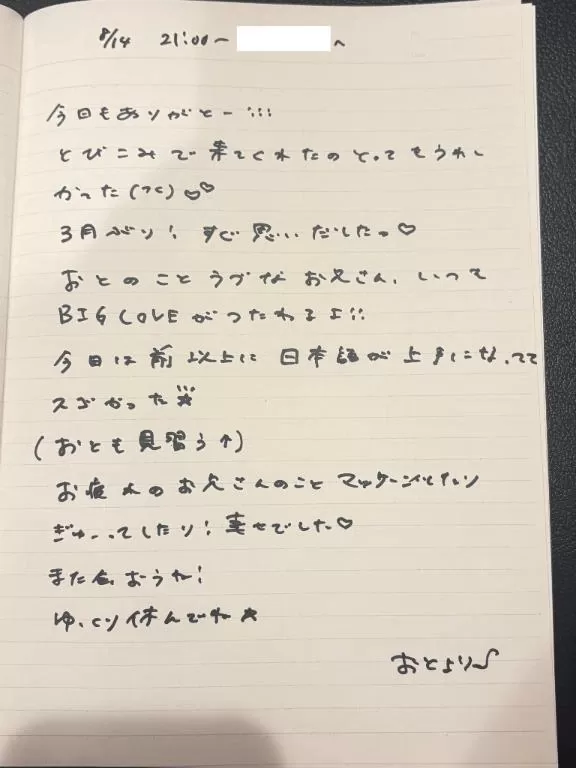 8/14 21:00〜 へ
今日もありがとー!!!
とびこみで来てくれたのとってもうれし
かった(つ⊂)♡♡
3月ぶり! すぐ思いだしたっ♡
おとのこと うづな お兄さん、いつて
BIG LOVEがつたわるよ!!
今日は前以上に日本語が上手になってて
スゴかった☆
(おとも見習う↑)
お疲れのお兄さんのこと マッサージしたり
ぎゅーってしたり! 幸せでした♡
また会おうね!
ゆっくり休んでね☆
おとより〜